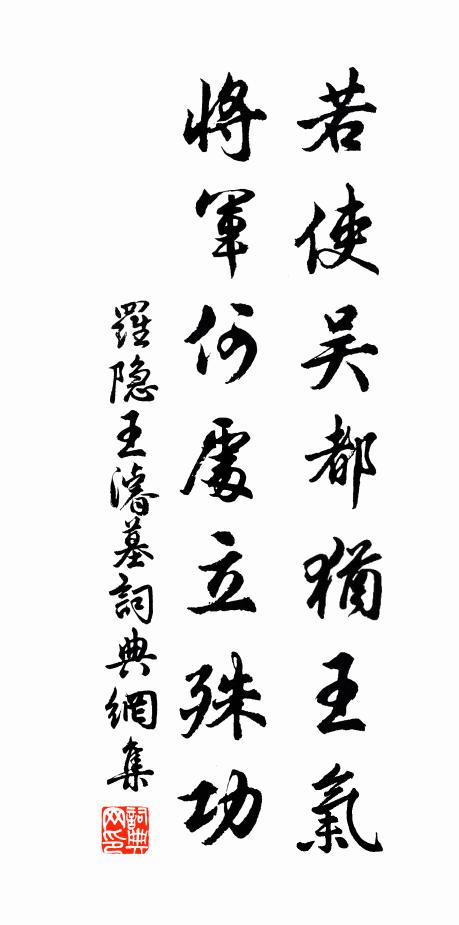 若使吴都猶王氣
將軍何處立殊功
羅隐王濬墓詞典網集
詞典网印